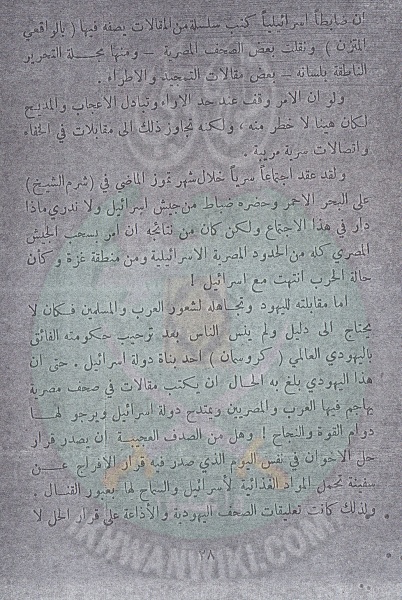 ان ضابطاً اسرائيلياً كتب سلسلة من المقالات يصفه فيها ( بالواقعي
المتزن ) ونقلت بعض الصحف المصرية – ومنها مجلة التحرير
الناطقة بلسانه – بعض مقالات التمجيد والاطراء .
ولو ان الامر وقف عند حد الاراء وتبادل الاعجاب والمديح
لكان هيناً لا خطر منه ، ولكنه تجاوز ذلك الى مقابلات في الخفاء
واتصالات سرية مريبة .
ولقد عقد اجتماعاً سرياً خلال شهر تموز الماضي في ( شرم الشيخ )
على البحر الاحمر وحضره ضباط من جيش اسرائيل ولا ندري ماذا
دار في هذا الاجتماع ولكن كان من نتائجه ان امر بسحب الجيش
المصري كله من الحدود المصرية الاسرائيلية ومن منطقة غزة وكأن
حالة الحرب انتهت مع اسرائيل !
اما مقابلته لليهود وتجاهله لشعور العرب والمسلمين فكان لا
يحتاج الى دليل ولم ينس الناس بعد ترحيب حكومته الفائق
باليهودي العالمي ( كروسمان ) احد بناة دولة اسرائيل . حتى ان
هذا اليهودي بلغ به الحال ان يكتب مقالات في صحف مصرية
يهاجم فيها العرب والمصريين ويمتدح دولة اسرائيل ويرجو لها
دوام القوة والنجاح ! وهل من الصدف العجيبة ان يصدر قرار
حل الاخوان في نفس اليوم الذي صدر فيه قرار الافراج عن
سفينة تحمل المواد الغذائية لأسرائيل والسماح لها بعبور القنال .
ولذلك كانت تعليقات الصحف اليهودية والأذاعة على قرار الحل لا
٢٨
IKHWANWIKI.COM